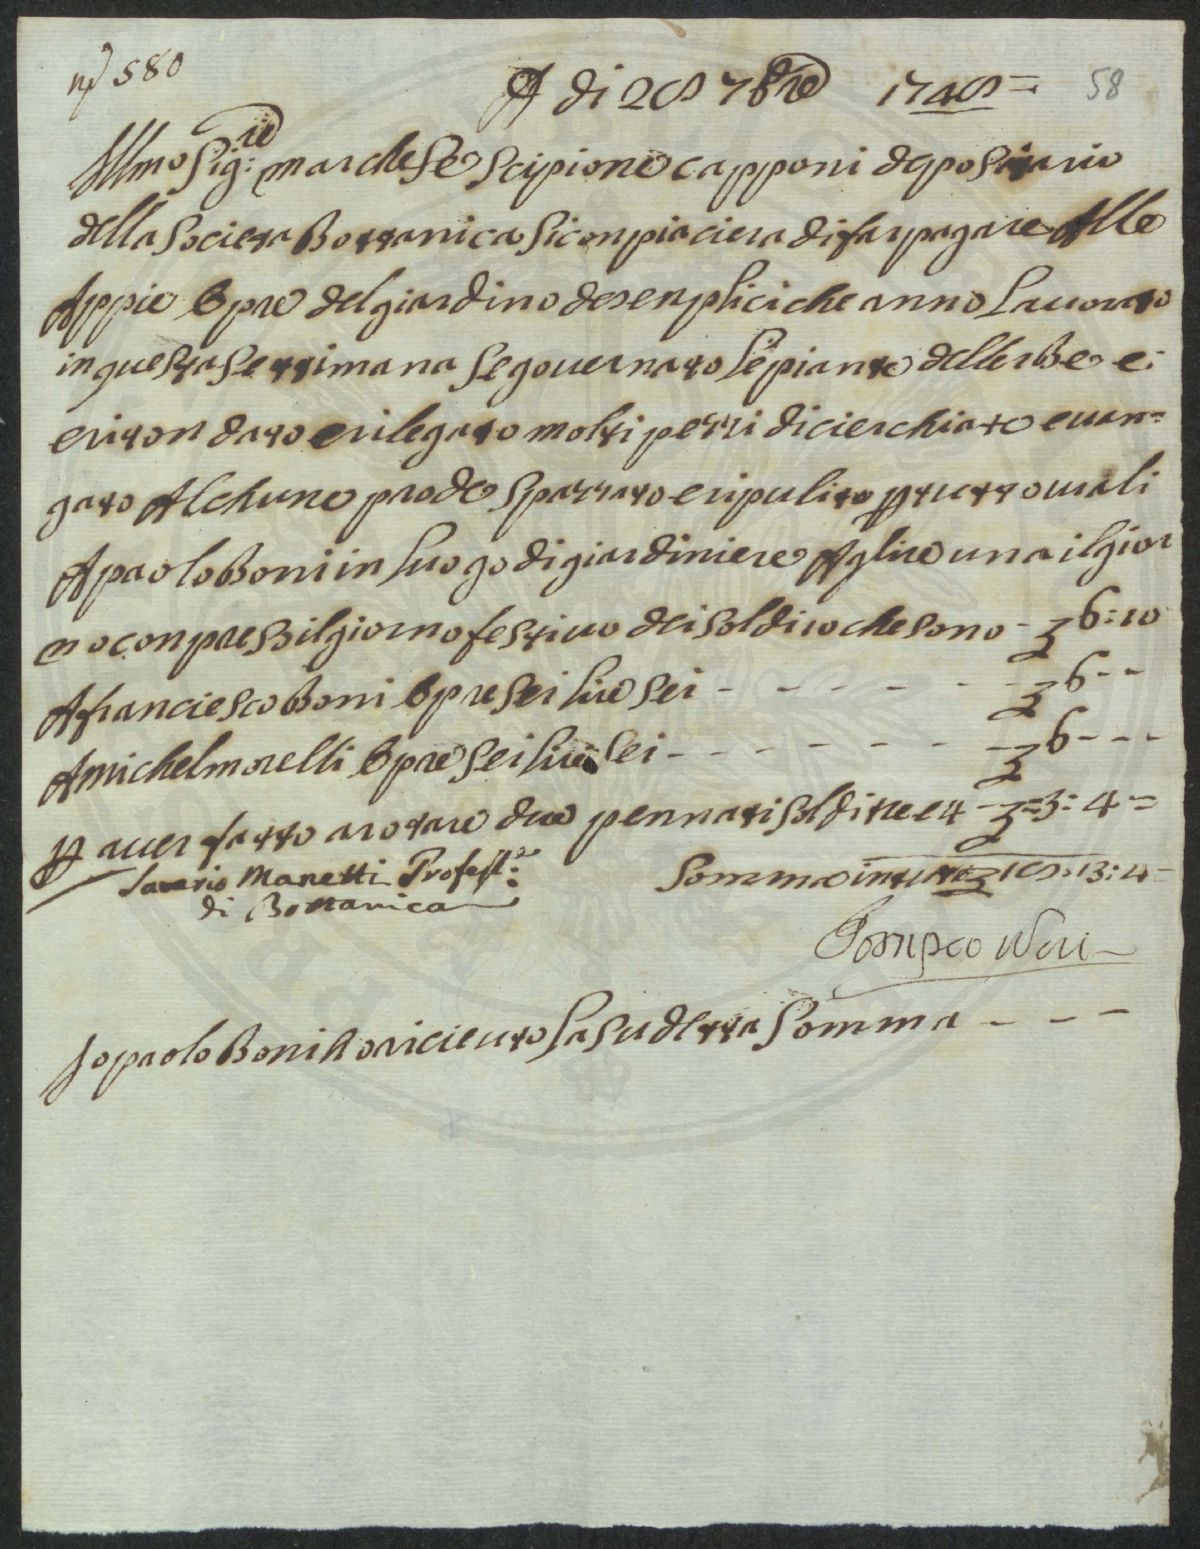 n° 580
A di 28 7bre 1748 = 58
Illmo Sig:re marchese scipione capponi depositario
della Societa Bottanica Si conpiaciera di far pagare Alle
Appie Opre del giardino de senplici che anno Lauorato
in questa settimana Se gouernato Le piante dellerbe e:
e riton dato e rilegato molti pezzi di cierchiate e uan=
gato Alchune prode spazzato e ripulito p tutto uiali
A paolo Boni in Luogo di giardiniere A lire una il gior
no conpreso il giorno festiuo dei soldi 10 che sono - 6:10
A franciesco Boni Opre sei lire sei - - - - - - 6 - -
A michel morelli Opre sei lire sei - - - - - - 6 - - -
p auer fatto arotare due pennati soldi tre e 4 - = 3: 4 =
Saverio Manetti Profess.re Somma in tutto 18: 13: 4 =
di Bottanica
Pompeo Neri
Io paolo Boni ho riceuto La sudetta Somma - - -